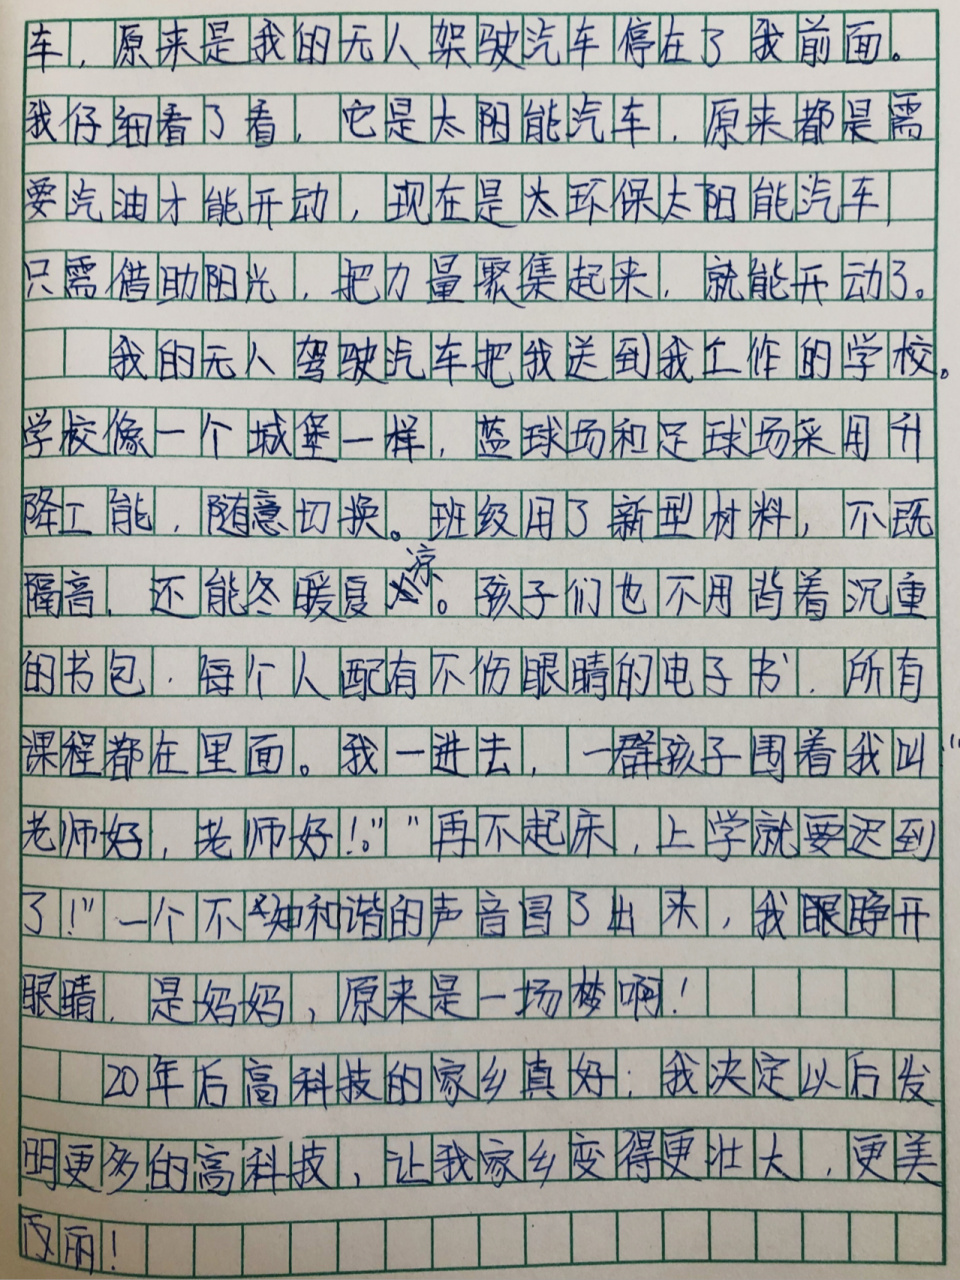 车，原来是我的无人驾驶汽车停在了我前面。
我仔细看了看，它是太阳能汽车，原来都是需
要汽油才能开动，现在是太环保太阳能汽车，
只需借助阳光，把力量聚集起来，就能开动了。
我的无人驾驶汽车把我送到我工作的学校。
学校像一个城堡一样，蓝球场和足球场采用升
降工能，随意切换。班级用了新型材料，不既
隔高，还能冬暖夏凉。孩子们也不用背着沉重
的书包，每个人配有不伤眼睛的电子书，所有
课程都在里面。我一进去，一群孩子围着我叫：“
老师好，老师好！。”“再不起床，上学就要迟到
了！”一个不和谐的声音冒了出来，我睁开
眼睛，是妈妈，原来是一场梦啊！
20年后高科技的家乡真好；我决定以后发
明更多的高科技，让我家乡变得更壮大，更美
丽！